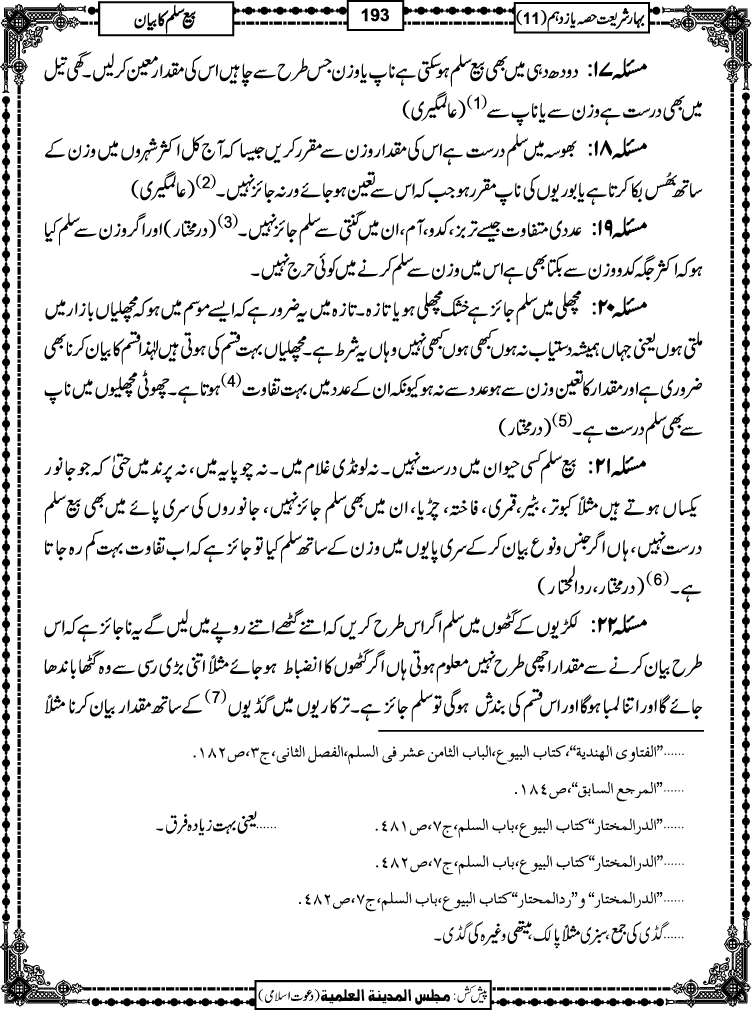 بہار شریعت حصہ یازدہم (11)
193
بیع سلم کا بیان
مسئلہ ۱۷: دودھ دہی میں بھی بیع سلم ہوسکتی ہے ناپ یا وزن جس طرح سے چاہیں اس کی مقدار معین کرلیں۔ گھی تیل
میں بھی درست ہے وزن سے یا ناپ سے (1) (عالمگیری)
مسئلہ ۱۸: بھوسہ میں سلم درست ہے اس کی مقدار وزن سے مقرر کریں جیسا کہ آج کل اکثر شہروں میں وزن کے
ساتھ بُھس بکا کرتا ہے یا بوریوں کی ناپ مقرر ہو جب کہ اس سے تعین ہو جائے ورنہ جائز نہیں۔ (2) (عالمگیری)
مسئلہ ۱۹: عددی متفاوت جیسے تربز، کدو، آم، ان میں گنتی سے سلم جائز نہیں۔ (3) (درمختار) اور اگر وزن سے سلم کیا
ہو کہ اکثر جگہ کدو وزن سے بکتا بھی ہے اس میں وزن سے سلم کرنے میں کوئی حرج نہیں۔
مسئلہ ۲۰: مچھلی میں سلم جائز ہے خشک مچھلی ہو یا تازہ۔ تازہ میں یہ ضرور ہے کہ ایسے موسم میں ہو کہ مچھلیاں بازار میں
ملتی ہوں یعنی جہاں ہمیشہ دستیاب نہ ہوں کبھی ہوں کبھی نہیں وہاں یہ شرط ہے۔ مچھلیاں بہت قسم کی ہوتی ہیں لہٰذا قسم کا بیان کرنا بھی
ضروری ہے اور مقدار کا تعین وزن سے ہو عدد سے نہ ہو کیونکہ ان کے عدد میں بہت تفاوت (4) ہوتا ہے۔ چھوٹی مچھلیوں میں ناپ
سے بھی سلم درست ہے۔ (5) (درمختار)
مسئلہ ۲۱: بیع سلم کسی حیوان میں درست نہیں۔ نہ لونڈی غلام میں۔ نہ چوپایہ میں، نہ پرند میں حتیٰ کہ جو جانور
یکساں ہوتے ہیں مثلاً کبوتر، بٹیر، قمری، فاختہ، چڑیا، ان میں بھی سلم جائز نہیں، جانوروں کی سری پائے میں بھی بیع سلم
درست نہیں، ہاں اگر جنس و نوع بیان کرکے سری پایوں میں وزن کے ساتھ سلم کیا تو جائز ہے کہ اب تفاوت بہت کم رہ جاتا
ہے۔ (6) (درمختار، ردالمحتار)
مسئلہ ۲۲: لکڑیوں کے گٹھوں میں سلم اگر اس طرح کریں کہ اتنے گٹھے اتنے روپے میں لیں گے یہ ناجائز ہے کہ اس
طرح بیان کرنے سے مقدار اچھی طرح نہیں معلوم ہوتی ہاں اگر گٹھوں کا انضباط ہو جائے مثلاً اتنی بڑی رسی سے وہ گٹھا باندھا
جائے گا اور اتنا لمبا ہوگا اور اس قسم کی بندش ہوگی تو سلم جائز ہے۔ ترکاریوں میں گڈیوں (7) کے ساتھ مقدار بیان کرنا مثلاً
......”الفتاوی الهندیة“، کتاب البیوع، الباب الثامن عشر فی السلم، الفصل الثانی، ج۳، ص۱۸۲.
......”المرجع السابق“، ص۱۸٤.
......”الدرالمختار“ کتاب البیوع، باب السلم، ج۷، ص٤۸۱. ......یعنی بہت زیادہ فرق۔
......”الدرالمختار“ کتاب البیوع، باب السلم، ج۷، ص٤۸۲.
......”الدرالمختار“ و ”ردالمحتار“ کتاب البیوع، باب السلم، ج۷، ص٤۸۲.
......گڈی کی جمع، سبزی مثلاً پالک، میتھی وغیرہ کی گڈی۔
پیش کش: مجلس المدینة العلمیة (دعوت اسلامی)